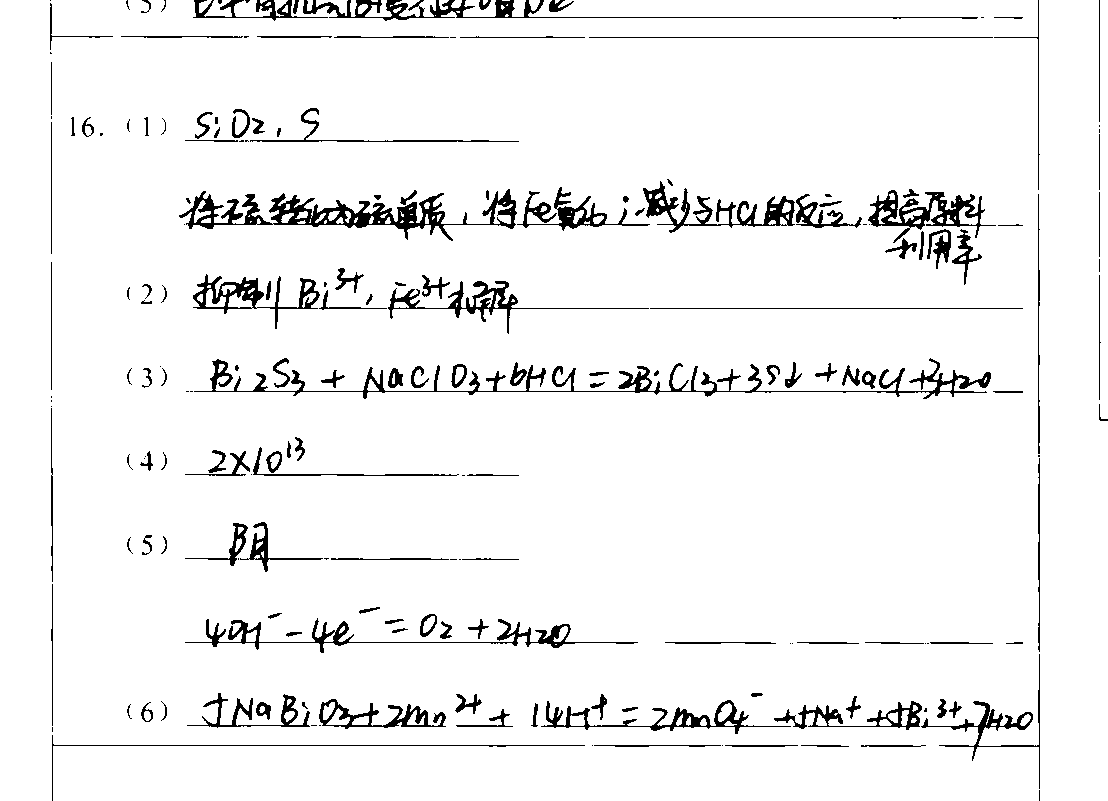 (5)
16. (1) SiO2, S
将硫转化为硫单质, 将Fe氧化; 减少与HCl的反应, 提高原料
利用率
(2) 抑制 Bi³⁺, Fe³⁺水解
(3) Bi2S3 + NaClO3+6HCl = 2BiCl3+3S↓+NaCl+3H2O
(4) 2×10¹³
(5) 阴
4OH⁻-4e⁻=O2+2H2O
(6) 5NaBiO3+2Mn²⁺+14H⁺=2MnO4⁻+5Na⁺+5Bi³⁺+7H2O